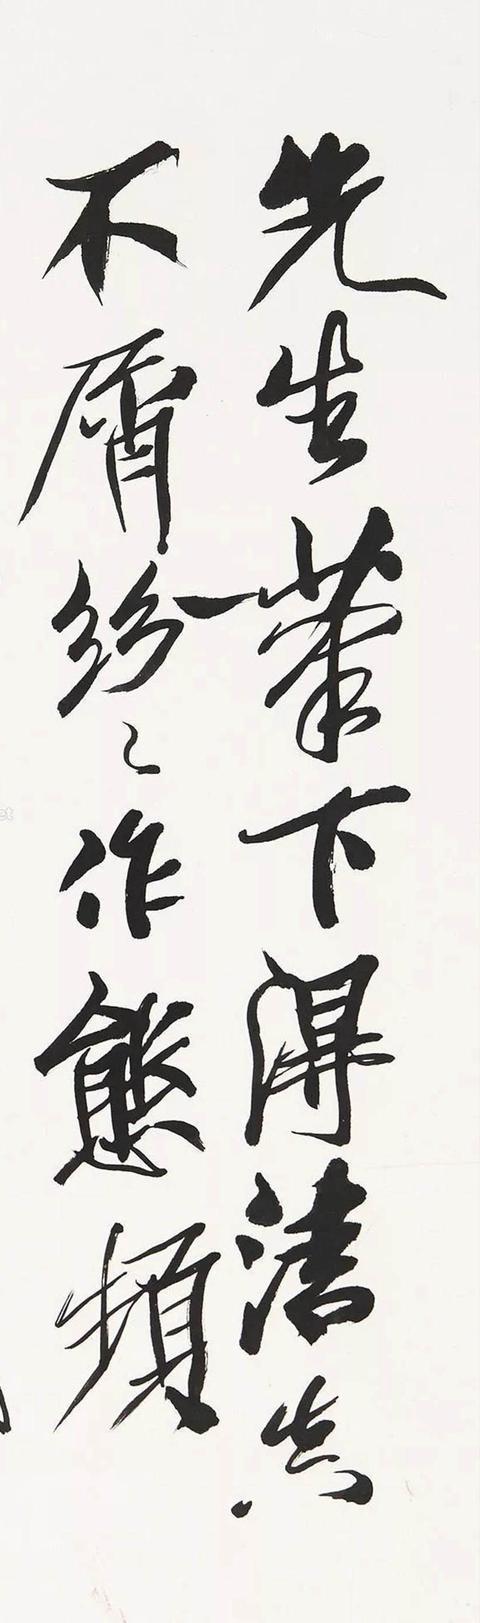 先生筆下得清真
不屑紛〻作態頻